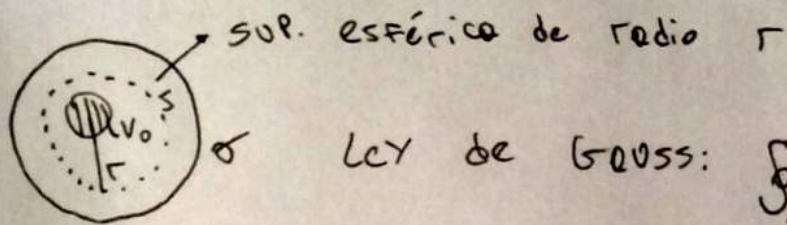 sup. esférica de radio r
S
V₀
r
σ Ley de Gauss: ∮